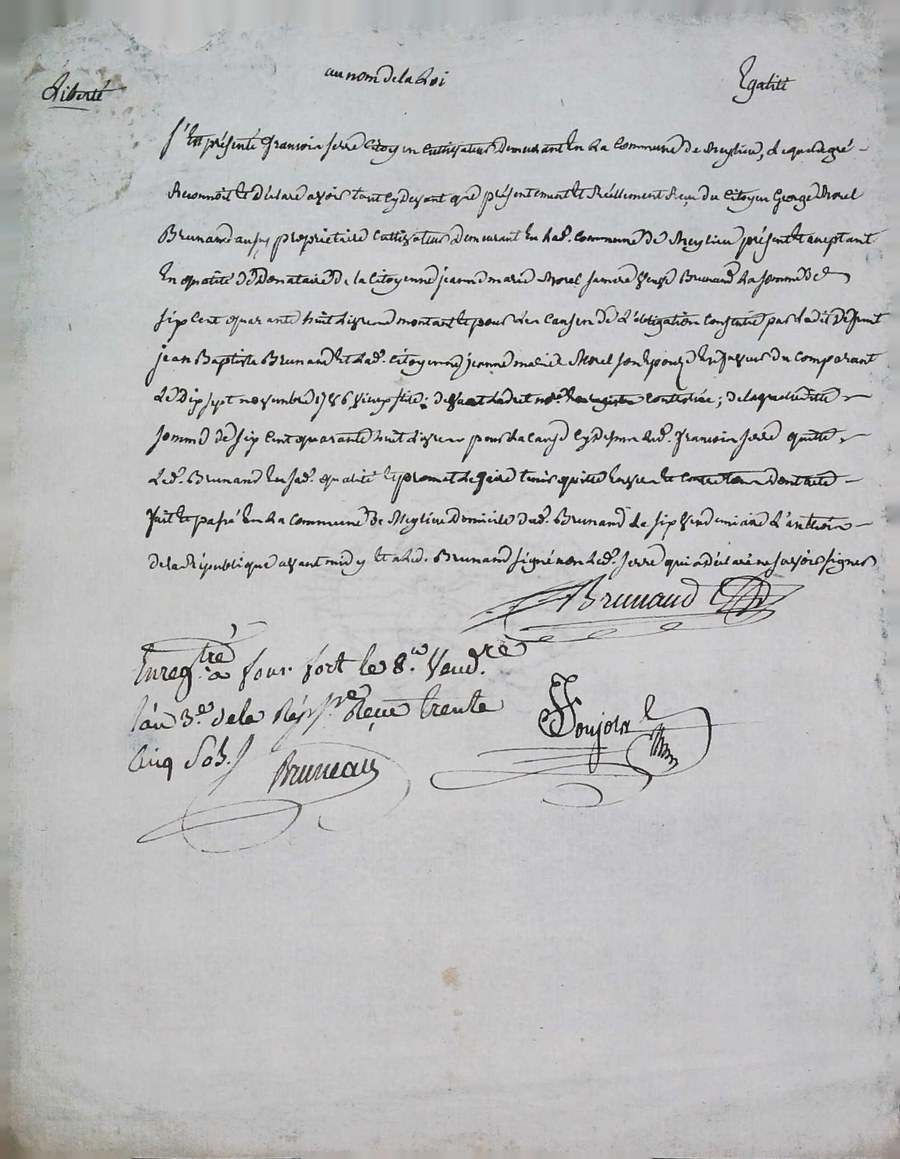 Liberté
au nom de la Loi
Egalité
S'est présenté francois serre Citoyen cultivateur Demeurant En la Commune De Meylieu, lequel de gré
Reconnoit et Déclare avoir tant cy devant que présentement et Réellement Reçu du Citoyen George Morel
Brunand aussy proprietaire Cultivateur demeurant En lad. Commune De Meylieu présent et aceptant
En qualité De Donataire De la Citoyenne jeanne marie Morel sa mere Veuve Brunand La somme De
six Cent quarante huit Livres montant et pour les Causes De L'obligation Consentie par Ledit Defunt
jean Baptiste Brunand et lad. Citoyenne jeanne marie Morel son Epouze En faveur du Comparant
Le Dix sept novembre 1786 Vieux stile; De laquelle ditte
somme De six Cent quarante huit Livres pour la cause cy Dessus led. francois serre quitte
Led. Brunand En sad. qualité et promet Le faire tenir quitte Envers et Contre tous Dont acte
fait et passé En La Commune De Meylieu Domicile dud. Brunand Le six Vendemiaire L'an trois
de la République avant midy Et a led. Brunand signé non Led. serre qui a déclaré ne savoir signer
Brunand
Enreg.tré a four fort le 8.e Vend.re
l'an 3.e de la Rép. Reçu trente
Cinq Sols
Bruneau
Soujols